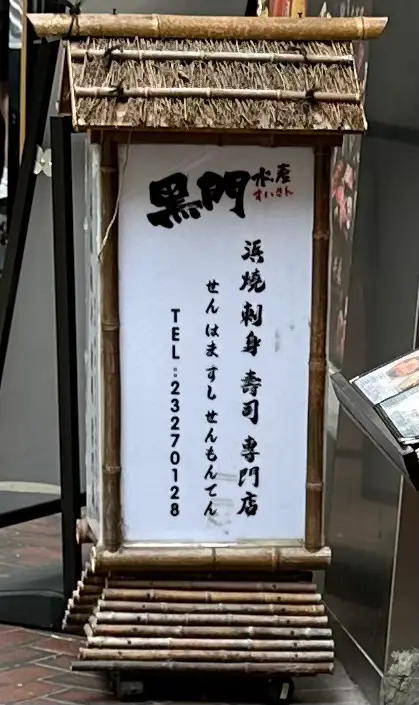 黒門 水産
すいさん
浜焼 刺身 寿司 専門店
せん はま すし せんもんてん
TEL:23270128